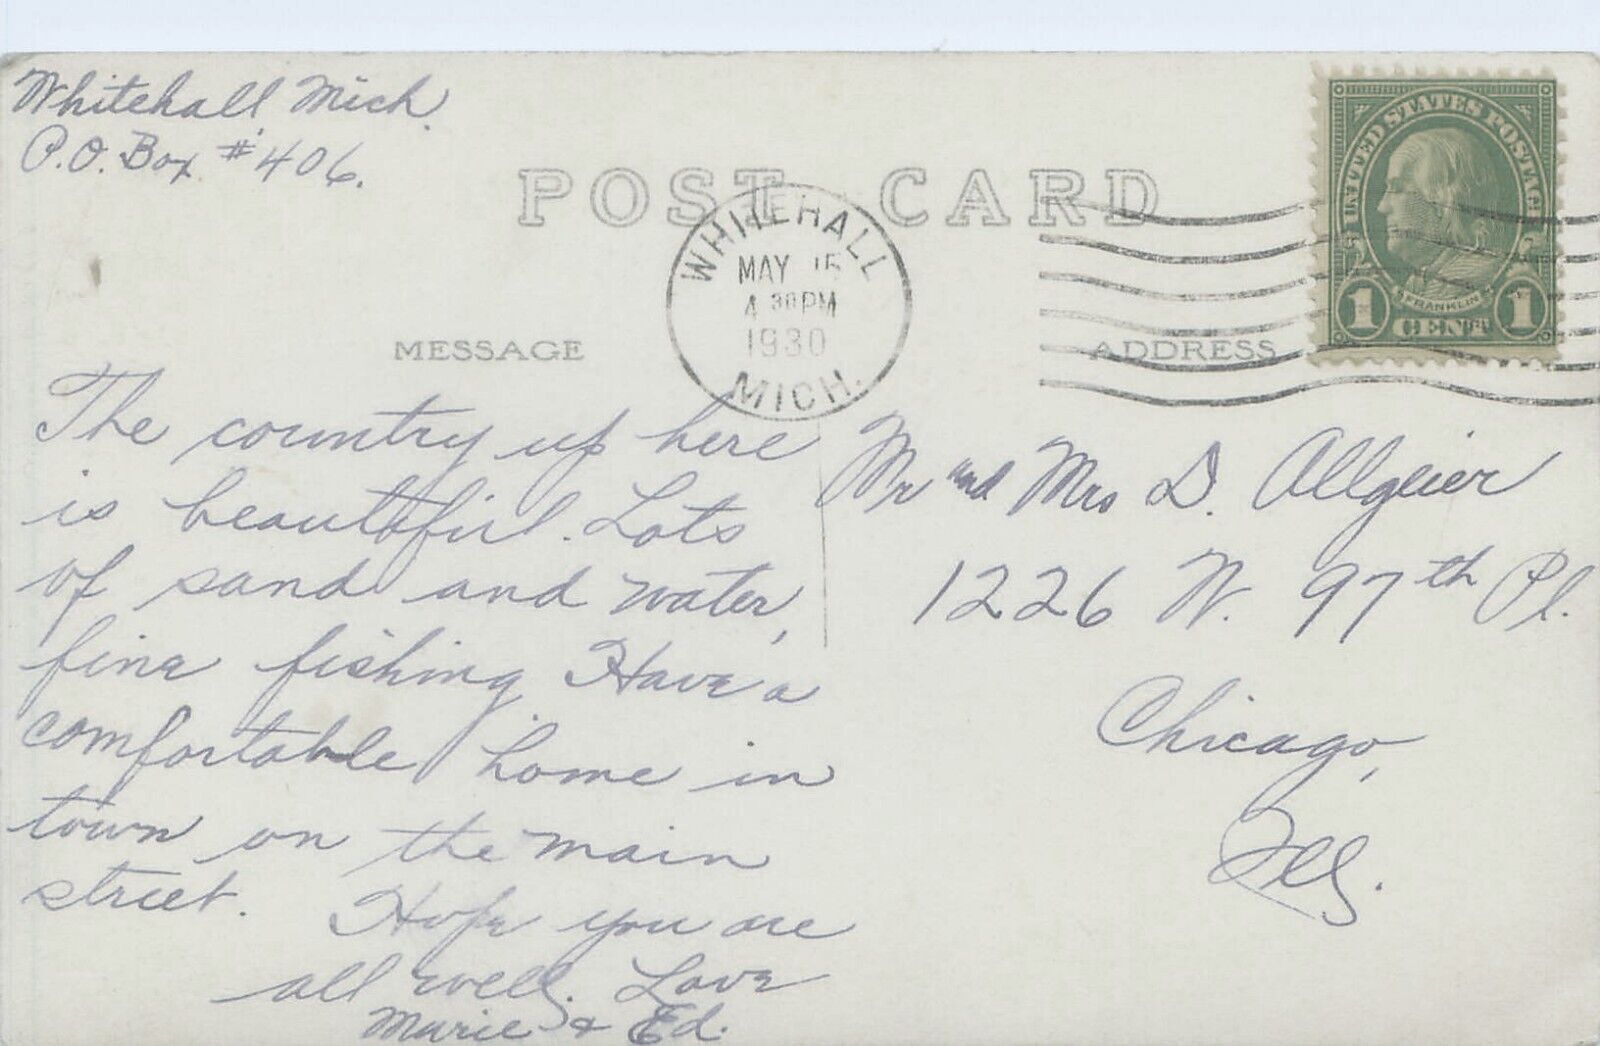 Whitehall, Mich.
P.O. Box #406.
POST CARD
WHITEHALL
MAY 15
4 30 PM
1930
MICH.
UNITED STATES POSTAGE
FRANKLIN
1 CENT 1
MESSAGE
ADDRESS
The country up here
is beautiful. Lots
of sand and water,
fine fishing. Have a
comfortable home in
town on the main
street. Hope you are
all well. Love
Marie & Ed.
Mr and Mrs D. Allgeier
1226 W. 97th Pl.
Chicago,
Ills.